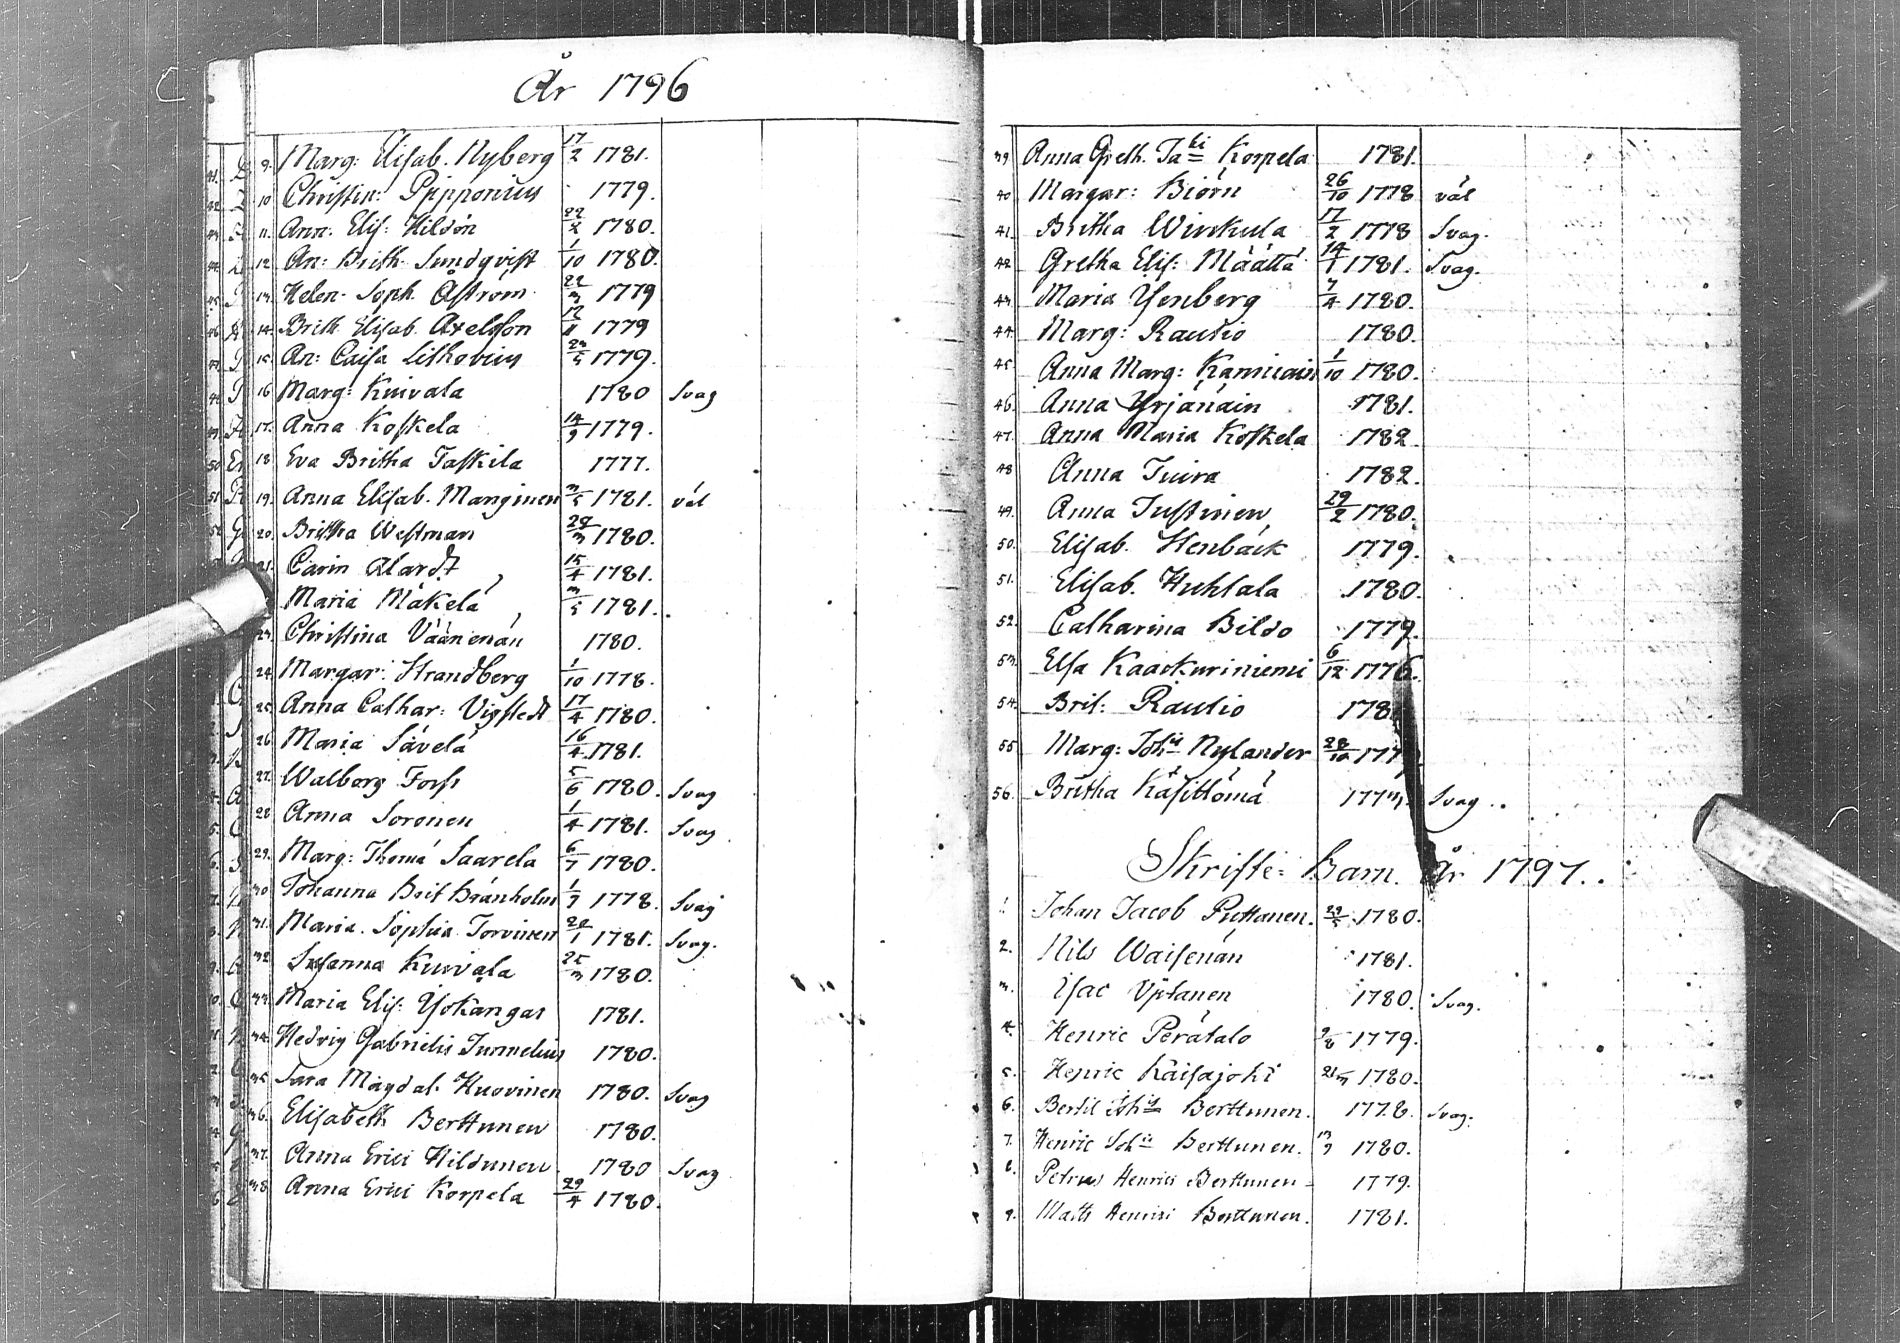 År 1796
9. Marg: Elisab. Nyberg 17/2 1781.
10 Christin: Pipponius 1779.
11. Ann. Elis: Hildén 22/2 1780.
12 An: Brith. Sundqvist 1/10 1780.
13. Helen. Soph. Åström 22/3 1779
14. Brith Elisab. Axelsson 12/11 1779
15. An: Caisa Lithovius 23/5 1779.
16 Marg: Kuivala 1780 Svag
17. Anna Koskela 14/9 1779.
18 Eva Britha Taskila 1777.
19. Anna Elisab. Manginen 3/5 1781. väl
20. Britha Westman 28/3 1780.
21. Carin Alardt 15/4 1781.
Maria Mäkelä 3/5 1781.
23. Christina Väänenän 1780.
24. Margar: Strandberg 1/10 1778.
25. Anna Cathar: Vigstedt 17/4 1780.
26. Maria Sävelä 16/4 1781.
27. Walborg Forss 5/6 1780. Svag
28 Anna Soronen 1/4 1781. Svag
29. Marg: Thomæ Saarela 6/7 1780.
30 Johanna Brit Bränholm 1/7 1778. Svag
31. Maria Sophia Torvinen 20/1 1781. Svag.
32 Susanna Kuivala 25/3 1780.
33. Maria Elis: Ysokangas 1781.
34. Hedvig Gabrielis Turmelius 1780.
35 Sara Magdal. Huovinen 1780. Svag
36. Elisabeth Berttunen 1780.
37. Anna Erici Hildunen 1780 Svag
38. Anna Erici Korpela 29/4 1780.
39 Anna Greth. Jaki Korpela 1781.
40 Margar: Biörn 26/10 1778 väl
41. Britha Wirkula 17/2 1778 Svag.
42 Gretha Elis: Määttä 14/1 1781. Svag.
43. Maria Ysenberg 7/4 1780.
44. Marg: Rautio 1780.
45. Anna Marg: Kanniain 1/10 1780.
46. Anna Yrjänäin 1781.
47. Anna Maria Koskela 1782
48 Anna Tuira 1782.
49. Anna Justinen 29/2 1780.
50. Elisab. Stenbäck 1779.
51. Elisab. Huhtala 1780.
52. Catharina Bildo 1779.
53. Elsa Kaackuriniemi 6/12 1776.
54. Brit: Rautio 178
55 Marg: Johis Nylander 28/10 177
56. Britha Käsittömä 1773. Svag.
Skrifte-Barn. År 1797.
1. Johan Jacob Puttanen. 29/5 1780.
2. Nils Waisenän 1781.
3. Isac Vjtanen 1780. Svag.
4. Henric Perätalo 2/8 1779.
5. Henric Kaisajoki 21/3 1780.
6. Bertil Johis Berttunen. 1778. Svag.
7. Henric Johis Berttunen. 13/9 1780.
8. Petrus Henrici Berttunen 1779.
9. Matts Henrici Berttunen. 1781.